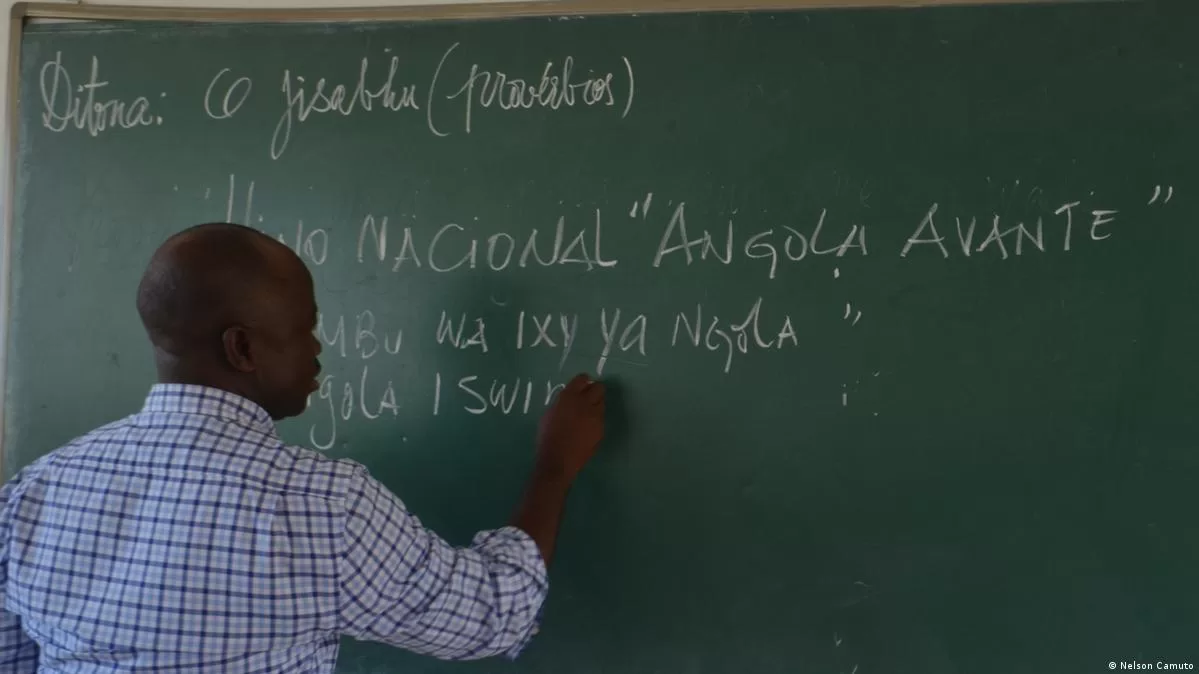 Ditona: O jisabhu (provérbios)
NACIONAL "ANGOLA AVANTE"
WA IXY YA NGOLA "
© Nelson Camuto